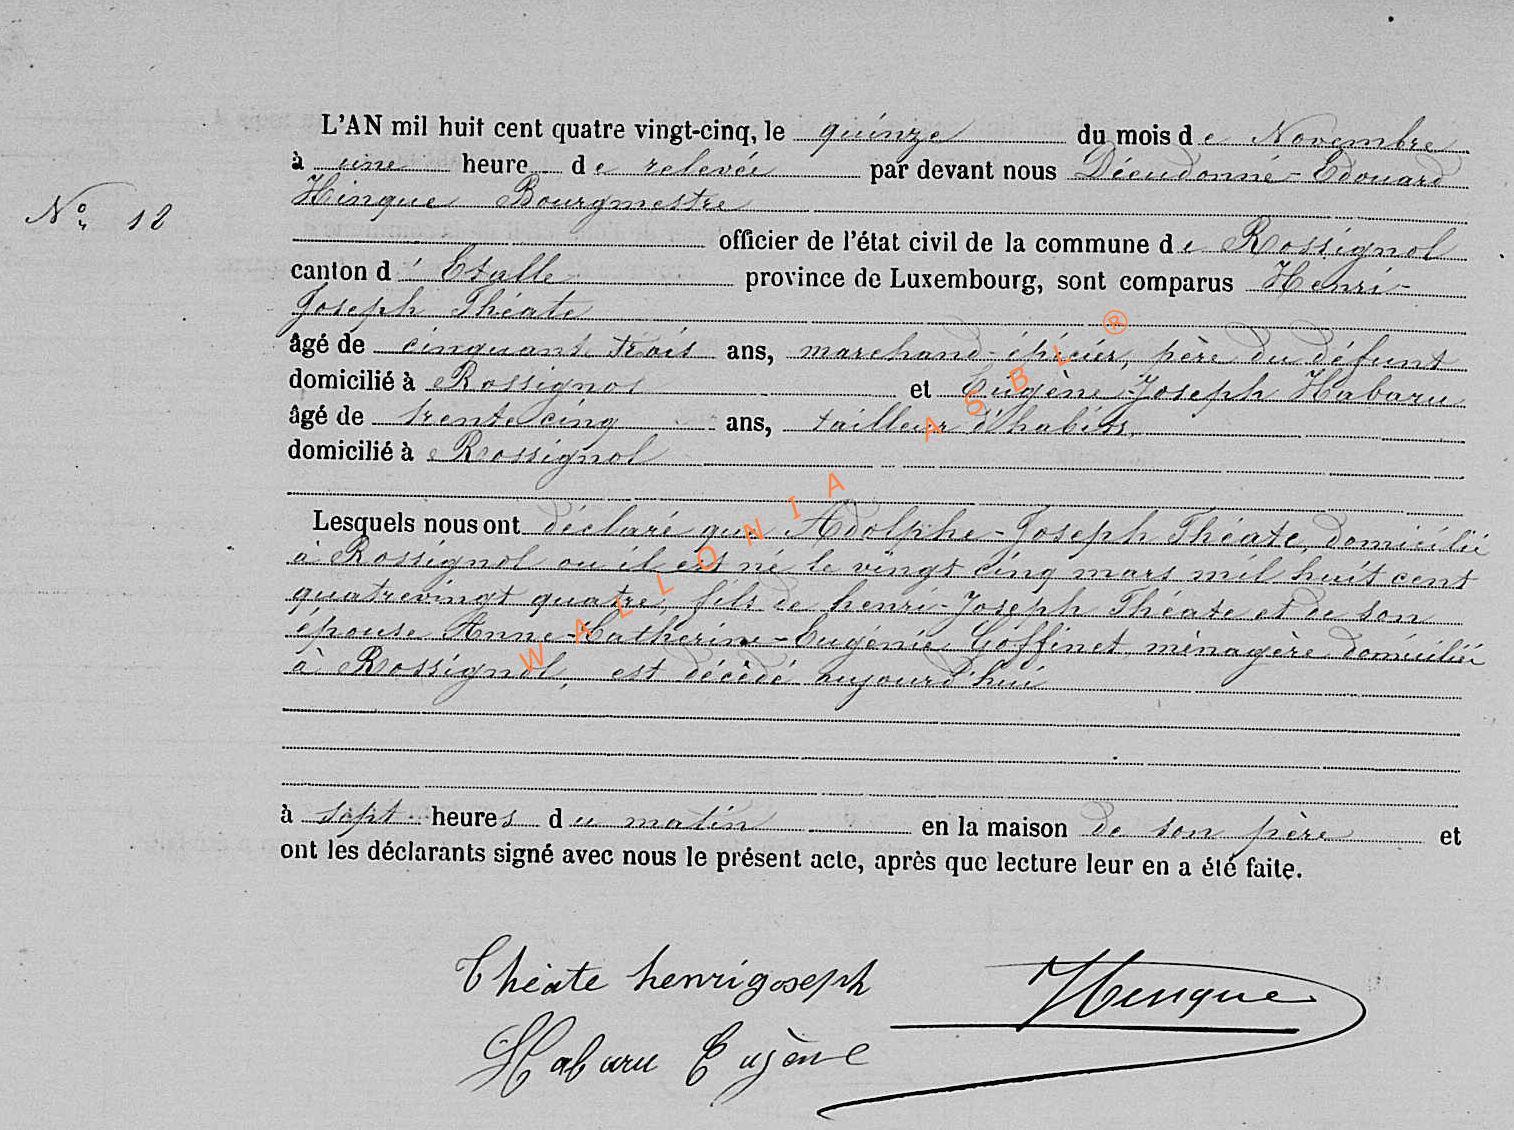 L'AN mil huit cent quatre vingt-cinq, le quinze du mois de Novembre
à une heure de relevée par devant nous Dieudonné-Edouard
Hinque Bourgmestre
N° 12
officier de l'état civil de la commune de Rossignol
canton d'Etalle province de Luxembourg, sont comparus Henri-
Joseph Théate
âgé de cinquante trois ans, marchand-épicier, père du défunt
domicilié à Rossignol et Eugène-Joseph Habaru
âgé de trente cinq ans, tailleur d'habits,
domicilié à Rossignol
Lesquels nous ont déclaré que Adolphe-Joseph Théate, domicilié
à Rossignol ou il est né le vingt cinq mars mil huit cent
quatrevingt quatre, fils de henri-Joseph Théate et de son
épouse Anne-Catherine-Eugénie Goffinet, ménagère domiciliée
à Rossignol, est décédé aujourd'hui
à sept heures du matin en la maison de son père et
ont les déclarants signé avec nous le présent acte, après que lecture leur en a été faite.
Théate henrijoseph Hinque
Habaru Eugène
WALLONIA ASBL ®